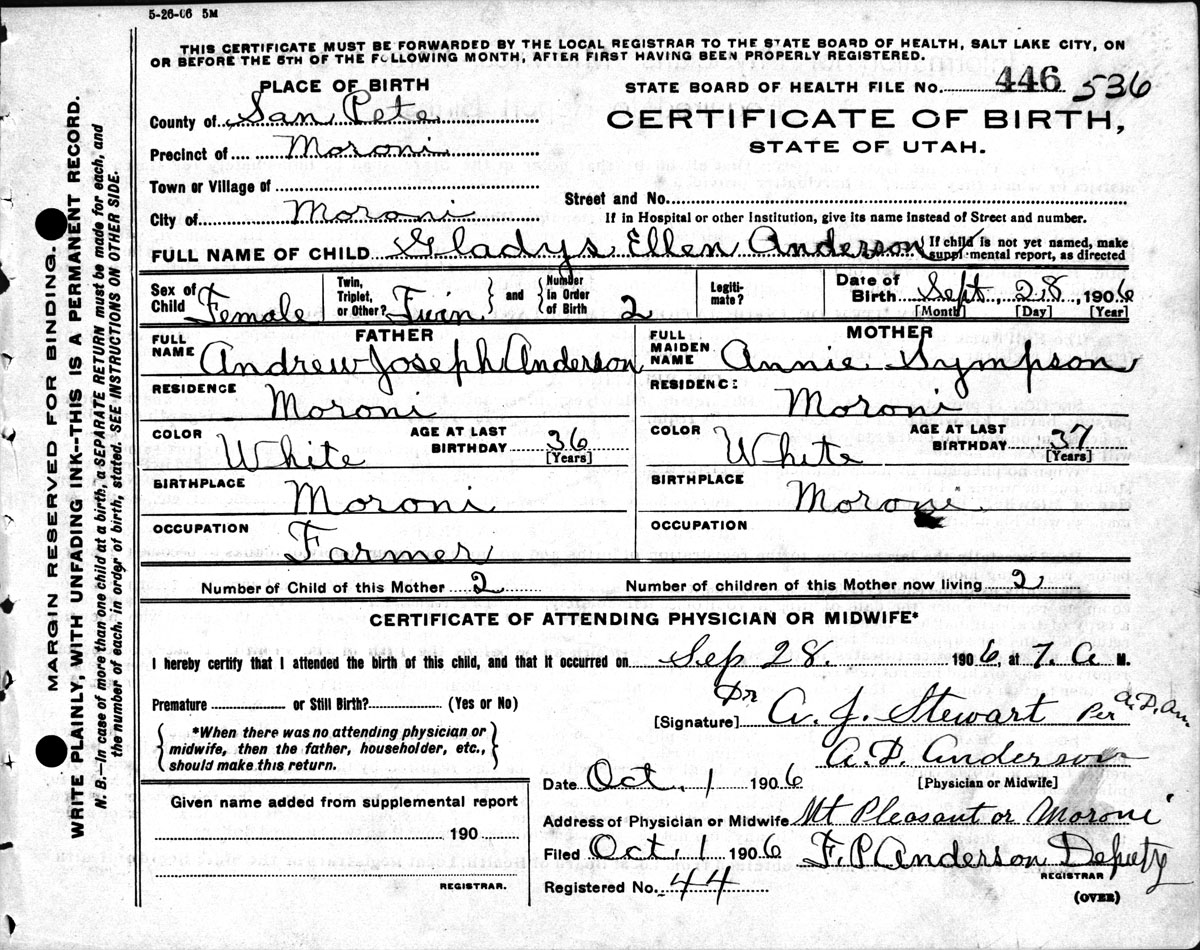 5-26-06 5M
THIS CERTIFICATE MUST BE FORWARDED BY THE LOCAL REGISTRAR TO THE STATE BOARD OF HEALTH, SALT LAKE CITY, ON
OR BEFORE THE 5TH OF THE FOLLOWING MONTH, AFTER FIRST HAVING BEEN PROPERLY REGISTERED.
PLACE OF BIRTH
STATE BOARD OF HEALTH FILE No. 446 536
County of San Pete
CERTIFICATE OF BIRTH,
STATE OF UTAH.
Precinct of Moroni
Town or Village of
Street and No.
City of Moroni
If in Hospital or other Institution, give its name instead of Street and number.
FULL NAME OF CHILD Gladys Ellen Anderson { If child is not yet named, make
supplemental report, as directed
Sex of Child Female
Twin, Triplet, or Other? Twin } and { Number in Order of Birth 2
Legiti-mate?
Date of Birth Sept, 28, 1906
[Month] [Day] [Year]
FATHER
FULL NAME Andrew Joseph Anderson
MOTHER
FULL MAIDEN NAME Annie Sympson
RESIDENCE Moroni
RESIDENCE Moroni
COLOR White AGE AT LAST BIRTHDAY 36 [Years]
COLOR White AGE AT LAST BIRTHDAY 37 [Years]
BIRTHPLACE Moroni
BIRTHPLACE Moroni
OCCUPATION Farmer
OCCUPATION
Number of Child of this Mother 2 Number of children of this Mother now living 2
CERTIFICATE OF ATTENDING PHYSICIAN OR MIDWIFE*
I hereby certify that I attended the birth of this child, and that it occurred on Sep 28. 1906, at 7. a M.
Premature or Still Birth? (Yes or No)
{ *When there was no attending physician or
midwife, then the father, householder, etc.,
should make this return. }
[Signature] Dr A. J. Stewart Per A. D. An
A. D. Anderson
[Physician or Midwife]
Date Oct. 1 1906
Address of Physician or Midwife Mt Pleasant or Moroni
Filed Oct. 1 1906 F. P. Anderson Deputy
REGISTRAR
Registered No. 44
(OVER)
Given name added from supplemental report
190
REGISTRAR.
MARGIN RESERVED FOR BINDING.
WRITE PLAINLY, WITH UNFADING INK--THIS IS A PERMANENT RECORD.
N. B.—In case of more than one child at a birth, a SEPARATE RETURN must be made for each, and
the number of each, in order of birth, stated. SEE INSTRUCTIONS ON OTHER SIDE.